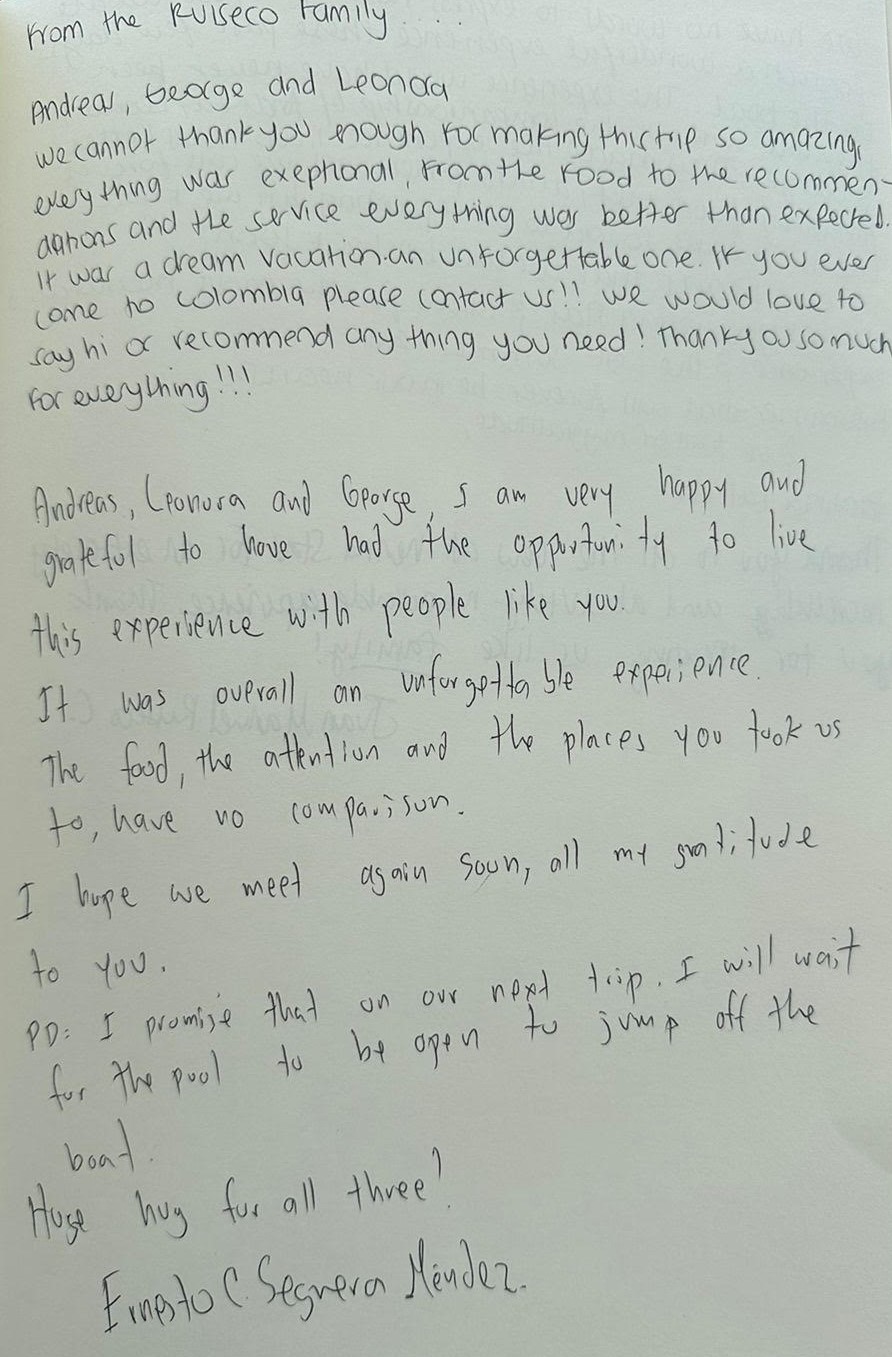 From the Ruiseco Family ....
Andreas, George and Leonora
we cannot thank you enough for making this trip so amazing,
everything was exeptional, from the food to the recommen-
dations and the service everything was better than expected.
It was a dream vacation. an unforgettable one. If you ever
come to colombia please contact us!! we would love to
say hi or recommend any thing you need! Thank you so much
for everything!!!
Andreas, Leonora and George, I am very happy and
grateful to have had the opportunity to live
this experience with people like you.
It was overall an unforgettable experience.
The food, the attention and the places you took us
to, have no comparison.
I hope we meet again soon, all my gratitude
to you.
PD: I promise that on our next trip. I will wait
for the pool to be open to jump off the
boat.
Huge hug for all three!
Ernesto C. Segrera Méndez.